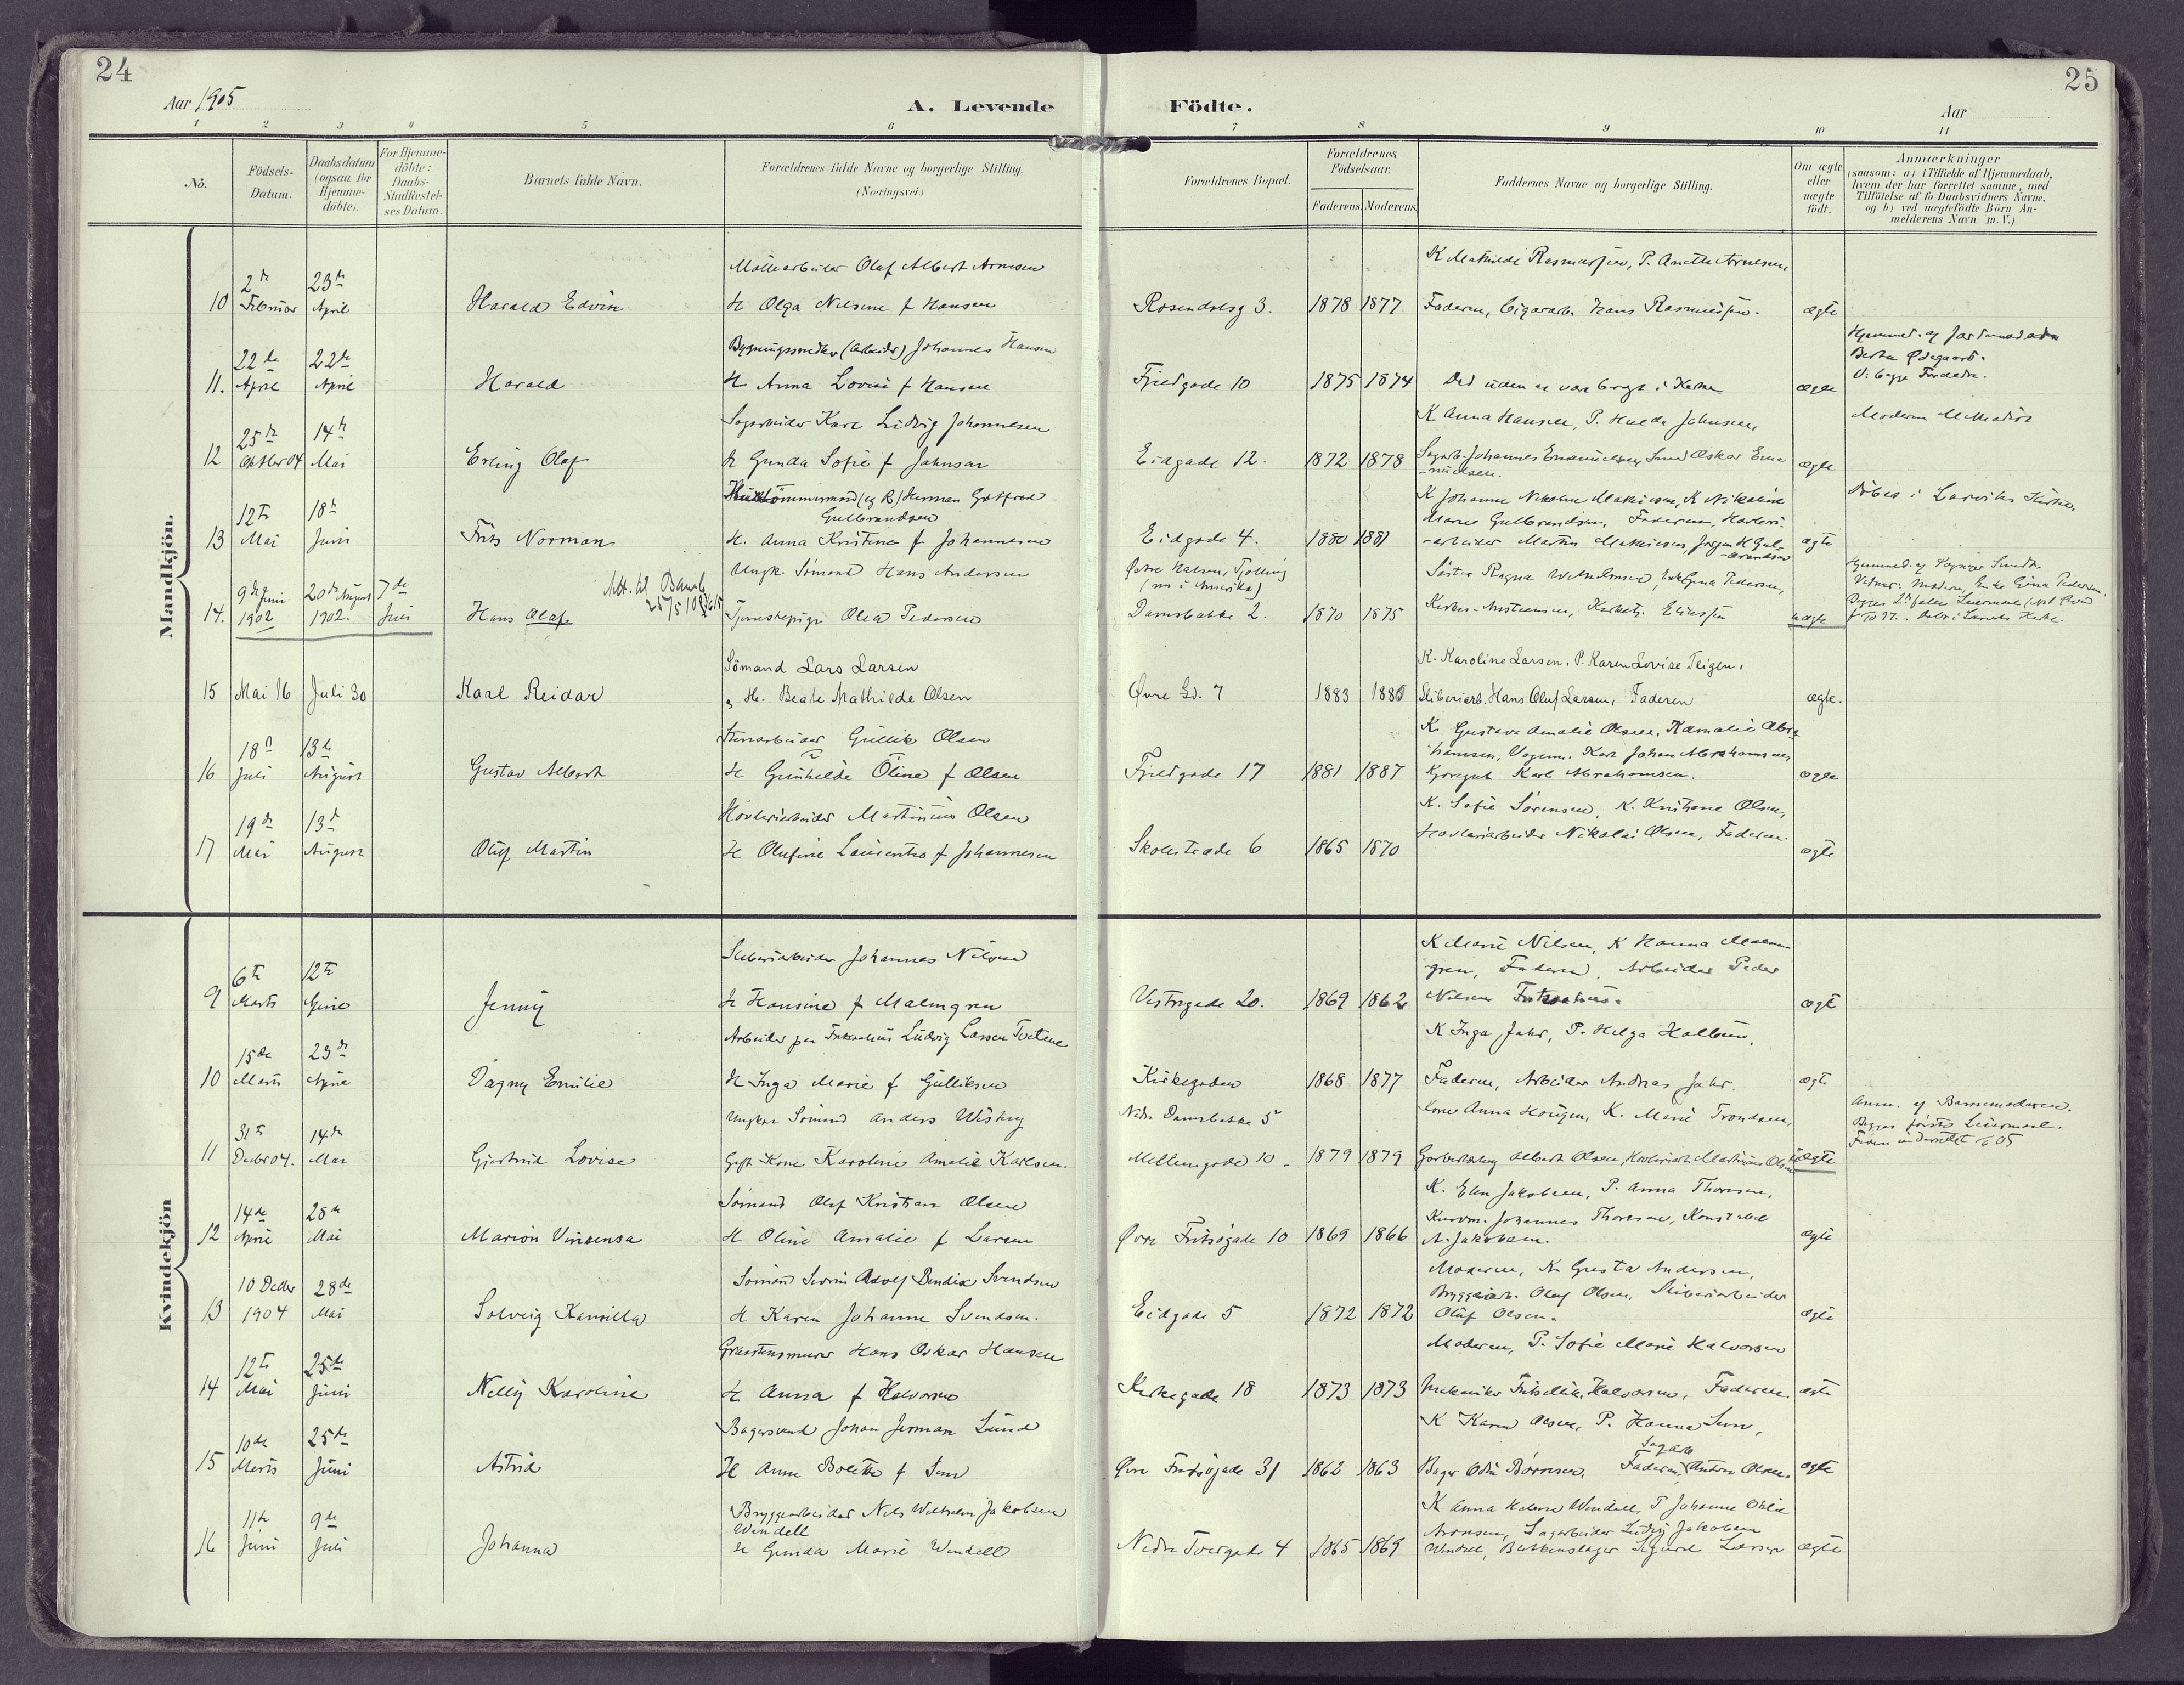 24
Aar 1905
A. Levende
Födte.
Aar
25
1 2 3 4 5 6 7 8 9 10 11
No.
Födsels-
Datum.
Daabsdatum
(ogsaa for
Hjemme-
döbte).
For Hjemme-
döbte:
Daabs-
Stadfæstel-
ses Datum.
Barnets fulde Navn.
Forældrenes fulde Navne og borgerlige Stilling.
(Næringsvei.)
Forældrenes Bopæl.
Forældrenes
Födselsaar.
Faderens. Moderens.
Faddernes Navne og borgerlige Stilling.
Om ægte
eller
uægte
födt.
Anmærkninger
(saasom: a) i Tilfælde af Hjemmedaab,
hvem der har forrettet samme, med
Tilföielse af to Daabsvidners Navne,
og b) ved uægtefödte Börn An-
melderens Navn m.V.)
Mandkjön.
10
2de Februar
23de April
Harald Edvin
Möllearbeider Olaf Albert Arnesen
H Olga Nilsine f Hansen
Rosendalsg 3.
1878 1877
K Mathilde Rasmussen, P. Anette Arnesen,
Faderen, Cigararb. Hans Rasmussen.
ægte
11.
22de April
22de April
Harald
Bygningssnedker (Arbeider) Johannes Hansen
H. Anna Lovise f Hansen
Fjeldgade 10
1875 1874
Död uden at være bragt i Kirke
ægte
Hjemmed. af Jordemoderen
Berthe Ödegaard.
V: begge Forældre.
12
25de Oktober 04
14de Mai
Erling Olaf
Sagarbeider Karl Ludvig Johannesen
H Gunda Sofie f Johnsen
Eidgade 12.
1872 1878
K Anna Hansen, P. Hulda Johnsen,
Sagarb. Johannes Smed Oskar Ema-
nuelsen.
ægte
Moderen
13
12te Mai
18de Juni
Frits Norman
tömmermand Herman Gotfred
Gulbrandsen
H. Anna Kristine f Johannesen
Eidgade 4.
1880 1881
K Johanne Nikoline Mathiesen, K Nikoline
Marie Gulbrandsen, Faderen, Hövleri-
-arbeider Martin Mathiesen, Jörgen H Gul-
-brandsen
ægte
Döbt i Larviks Kirke.
14.
9de Juni
1902
20de August
1902.
7de
Juli
Hans Olaf
Att. til Bamble
25/5 10
Ungk. Sömand Hans Andersen
Tjenestepige Olea Pedersen
Östre Halsen, Tjölling
(nu i Amerika)
Damsbakke 2.
1870 1875
Söster Ragna Wilhelmsen, Enke Gina Pedersen,
Kirkes. Kirketj. Eliassen
uægte
Hjemmed. af
Vidner: Moderen, Enke Gina Pedersen.
Begges 2det fælles Leiermaal
Döbt i Larviks Kirke.
15
Mai 16
Juli 30
Karl Reidar
Sömand Lars Larsen
og H. Beate Mathilde Olsen
Övre Gd. 7
1883 1885
K. Karoline Larsen, P. Karen Lovise Teigen,
Sliberiarb. Hans Oluf Larsen, Faderen
ægte.
16
18de Juli
13de August
Gustav Albert
Stenarbeider Gullik Olsen
H Gunhilde Oline f Olsen
Fjeldgade 17
1881 1887
K. Gustava Amalie Olsen, K Amalie Abra-
hamsen, Vognm. Karl Johan Abrahamsen,
Kjöregut Karl Abrahamsen.
ægte
17
19de Mai
13de August
Oluf Martin
Hövleriarbeider Martinius Olsen
H Olufine Laurentse f Johannesen
Skolestræde 6
1865 1870
K. Sofie Sörensen, K. Kristiane Olsen,
Hövleriarbeider Nikolai Olsen, Faderen.
ægte
Kvindekjön
9
6te Marts
12te
Jenny
Sliberiarbeider Johannes Nilsen
H Hansine f Malmgren
Vestregade 20.
1869 1862
K Marie Nilsen, K Hanna Malm-
gren, Faderen, Arbeider Peder
Nilsen Fritzöehus.
ægte
10
15de Marts
23de April
Dagny Emilie
Arbeider paa Fritzöehus Ludvig Larsen Tvetene
H Inga Marie f Gulliksen
Kirkegaden
1868 1877
K Inga Jahr, P. Helga Holbein,
Faderen, Arbeider Andreas Jahr.
ægte
11
31te Decbr 04.
14de Mai
Gjertrud Lovise
Ungkar Sömand Anders Wisby
Gift Kone Karoline Amalie Karlsen.
Nedre Damsbakke 5
Mellemgade 10.
1879 1879
Kone Anna Haugen, K. Marie Trondsen,
Albert Olsen, Hövleriarb Martinius Olsen
uægte
Anm. af Barnemoderen.
Begges förste Leiermaal.
12
14de April
28de Mai
Marion Vinsensa
Sömand Oluf Kristian Olsen
H Oline Amalie f Larsen
Övre Fritsögade 10
1869 1866
K. Elen Jakobsen, P. Anna Thoresen,
Kurvm. Johannes Thoresen, Konstabel
A. Jakobsen.
ægte
13
10 Decbr
1904
28de
Mai
Solveig Kamilla
Sömand Severin Adolf Bendix Svendsen
H Karen Johanne Svendsen.
Eidgade 5
1872 1872
Moderen, K. Gusta Andersen,
Bryggeriarb. Olaf Olsen, Sliberiarbeider
Oluf Olsen.
ægte
14
12te Mai
25de Juni
Nelly Karoline
Graastensmurer Hans Oskar Hansen
H Anna f Halvorsen
Kirkegade 18
1873 1873
Moderen, P. Sofie Marie Halvorsen
Mekaniker Halvorsen, Faderen.
ægte
15
10de Marts
25de Juni
Astrid
Bagersvend Johan Lund
H Anne Bolette f
Övre Fritsögade 31
1862 1863
K Karen Olsen, P. Hanna
Bager Odin Börresen, Faderen, Sagarb Anton Olsen.
ægte
16
11te Juni
9de Juli
Johanna
Bryggearbeider Nils Wilhelm Jakobsen
Windell
H Gunda Marie Windell
Nedre Tvergade 4
1865 1869
K Anna Helene Windell, P Johanne Otilie
Aronsen, Sagarbeider Ludvig Jakobsen
Windell, Sigurd Larsen
ægte